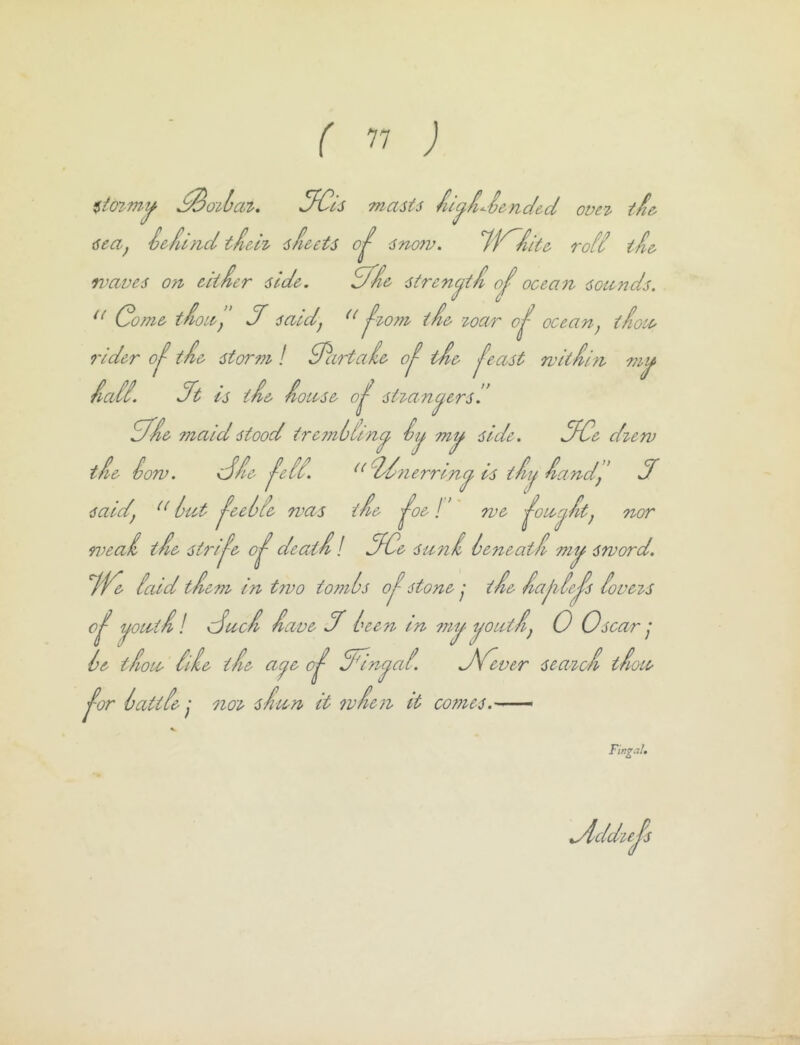 ( 77 )
stormy Borbar. His masts high-bended over the
sea, behind their sheets of snow. White roll the
waves on either side. The strength of ocean sounds.
“ Come thou,” I said, “ from the roar of ocean, thou
rider of the storm ! Partake of the feast within my
hall. It is the house of strangers.”
The maid stood trembling by my side. He drew
the bow. She fell. “ Unerring is thy hand,” I
said, “ but feeble was the foe !” we fought, nor
weak the strife of death ! He sunk beneath my sword.
We laid them in two tombs of stone ; the hapleſs lovers
of youth ! Such have I been in my youth, O Oscar ;
be thou like the age of Fingal. Never search thou
for battle ; nor shun it when it comes.——
Fingal.
Addreſs